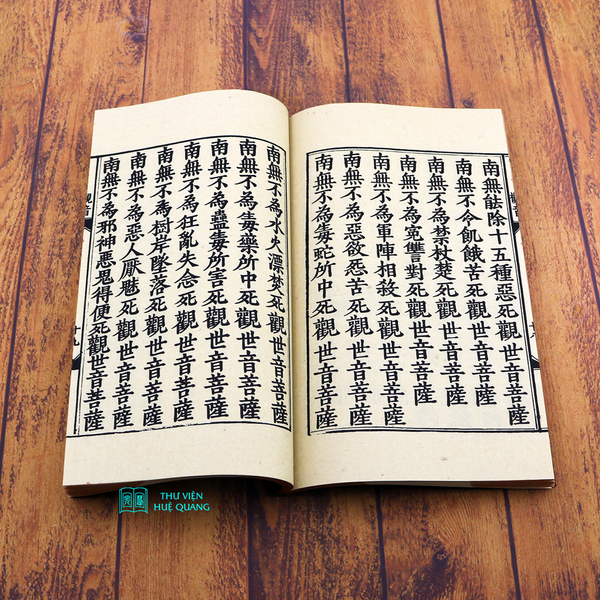 南無䏻除十五種惡死觀世音菩薩
南無不令飢餓苦死觀世音菩薩
南無不為禁杖楚死觀世音菩薩
南無不為寃讐對死觀世音菩薩
南無不為軍陣相殺死觀世音菩薩
南無不為惡欲怨苦死觀世音菩薩
南無不為毒蛇所中死觀世音菩薩
南無不為水火漂焚死觀世音菩薩
南無不為毒藥所中死觀世音菩薩
南無不為蠱毒所害死觀世音菩薩
南無不為狂亂失念死觀世音菩薩
南無不為樹岸墜落死觀世音菩薩
南無不為惡人厭魅死觀世音菩薩
南無不為邪神惡鬼得便死觀世音菩薩
觀音
THƯ VIỆN
HUỆ QUANG